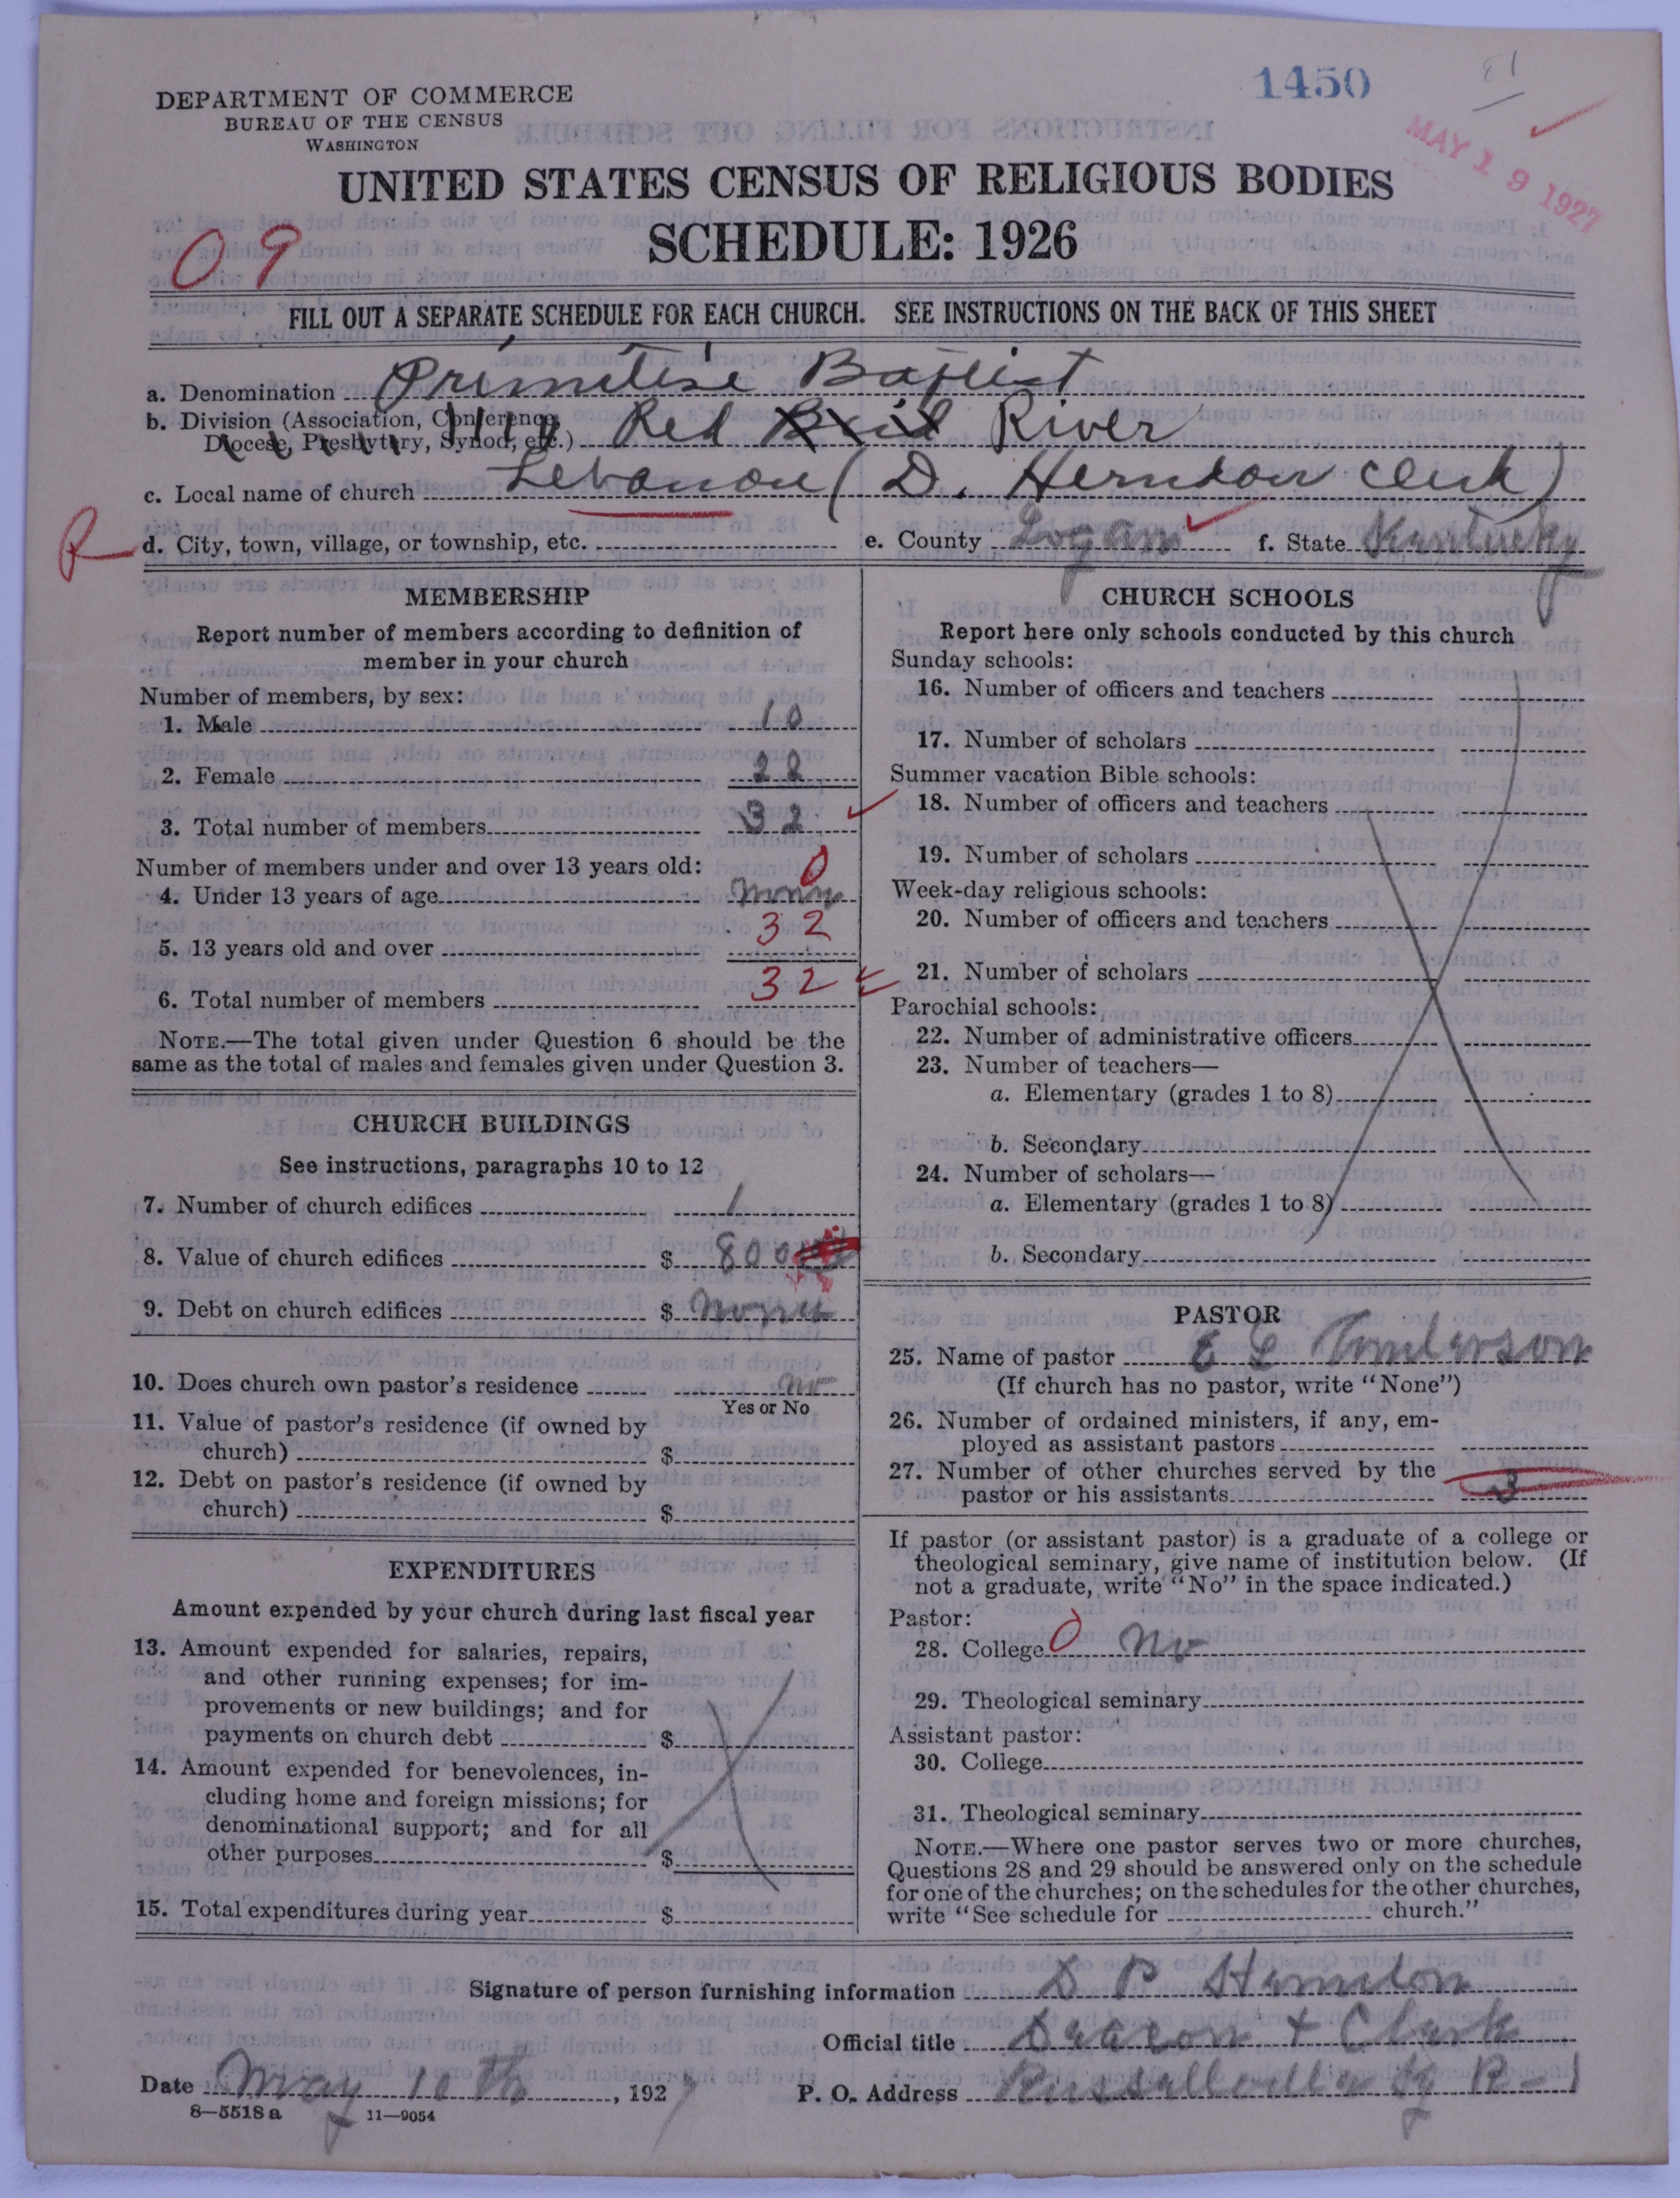 1450
DEPARTMENT OF COMMERCE
BUREAU OF THE CENSUS
WASHINGTON
MAY 19 1927
UNITED STATES CENSUS OF RELIGIOUS BODIES
SCHEDULE: 1926
09
FILL OUT A SEPARATE SCHEDULE FOR EACH CHURCH. SEE INSTRUCTIONS ON THE BACK OF THIS SHEET
a. Denomination Primitive Baptist
b. Division (Association, Conference,
Diocese, Presbytery, Synod, etc.) Red River
c. Local name of church Lebanon (D. Herndon Clerk)
R d. City, town, village, or township, etc. e. County Logan f. State Kentucky
MEMBERSHIP
Report number of members according to definition of
member in your church
Number of members, by sex:
1. Male 10
2. Female 22
3. Total number of members 32
Number of members under and over 13 years old:
0
4. Under 13 years of age
5. 13 years old and over 32
6. Total number of members 32
NOTE.—The total given under Question 6 should be the
same as the total of males and females given under Question 3.
CHURCH BUILDINGS
See instructions, paragraphs 10 to 12
7. Number of church edifices 1
8. Value of church edifices $ 800
9. Debt on church edifices $
10. Does church own pastor's residence no
Yes or No
11. Value of pastor's residence (if owned by
church) $
12. Debt on pastor's residence (if owned by
church) $
EXPENDITURES
Amount expended by your church during last fiscal year
13. Amount expended for salaries, repairs,
and other running expenses; for im-
provements or new buildings; and for
payments on church debt $
14. Amount expended for benevolences, in-
cluding home and foreign missions; for
denominational support; and for all
other purposes $
15. Total expenditures during year $
CHURCH SCHOOLS
Report here only schools conducted by this church
Sunday schools:
16. Number of officers and teachers
17. Number of scholars
Summer vacation Bible schools:
18. Number of officers and teachers
19. Number of scholars
Week-day religious schools:
20. Number of officers and teachers
21. Number of scholars
Parochial schools:
22. Number of administrative officers
23. Number of teachers—
a. Elementary (grades 1 to 8)
b. Secondary
24. Number of scholars—
a. Elementary (grades 1 to 8)
b. Secondary
PASTOR
25. Name of pastor
(If church has no pastor, write "None")
26. Number of ordained ministers, if any, em-
ployed as assistant pastors
27. Number of other churches served by the
pastor or his assistants 3
If pastor (or assistant pastor) is a graduate of a college or
theological seminary, give name of institution below. (If
not a graduate, write "No" in the space indicated.)
Pastor:
28. College 0 no
29. Theological seminary
Assistant pastor:
30. College
31. Theological seminary
NOTE.—Where one pastor serves two or more churches,
Questions 28 and 29 should be answered only on the schedule
for one of the churches; on the schedules for the other churches,
write "See schedule for church."
Signature of person furnishing information D P Herndon
Official title Deacon + Clerk
Date May 10th, 1927 P. O. Address Russellville Ky R-1
8—5518 a 11—9054